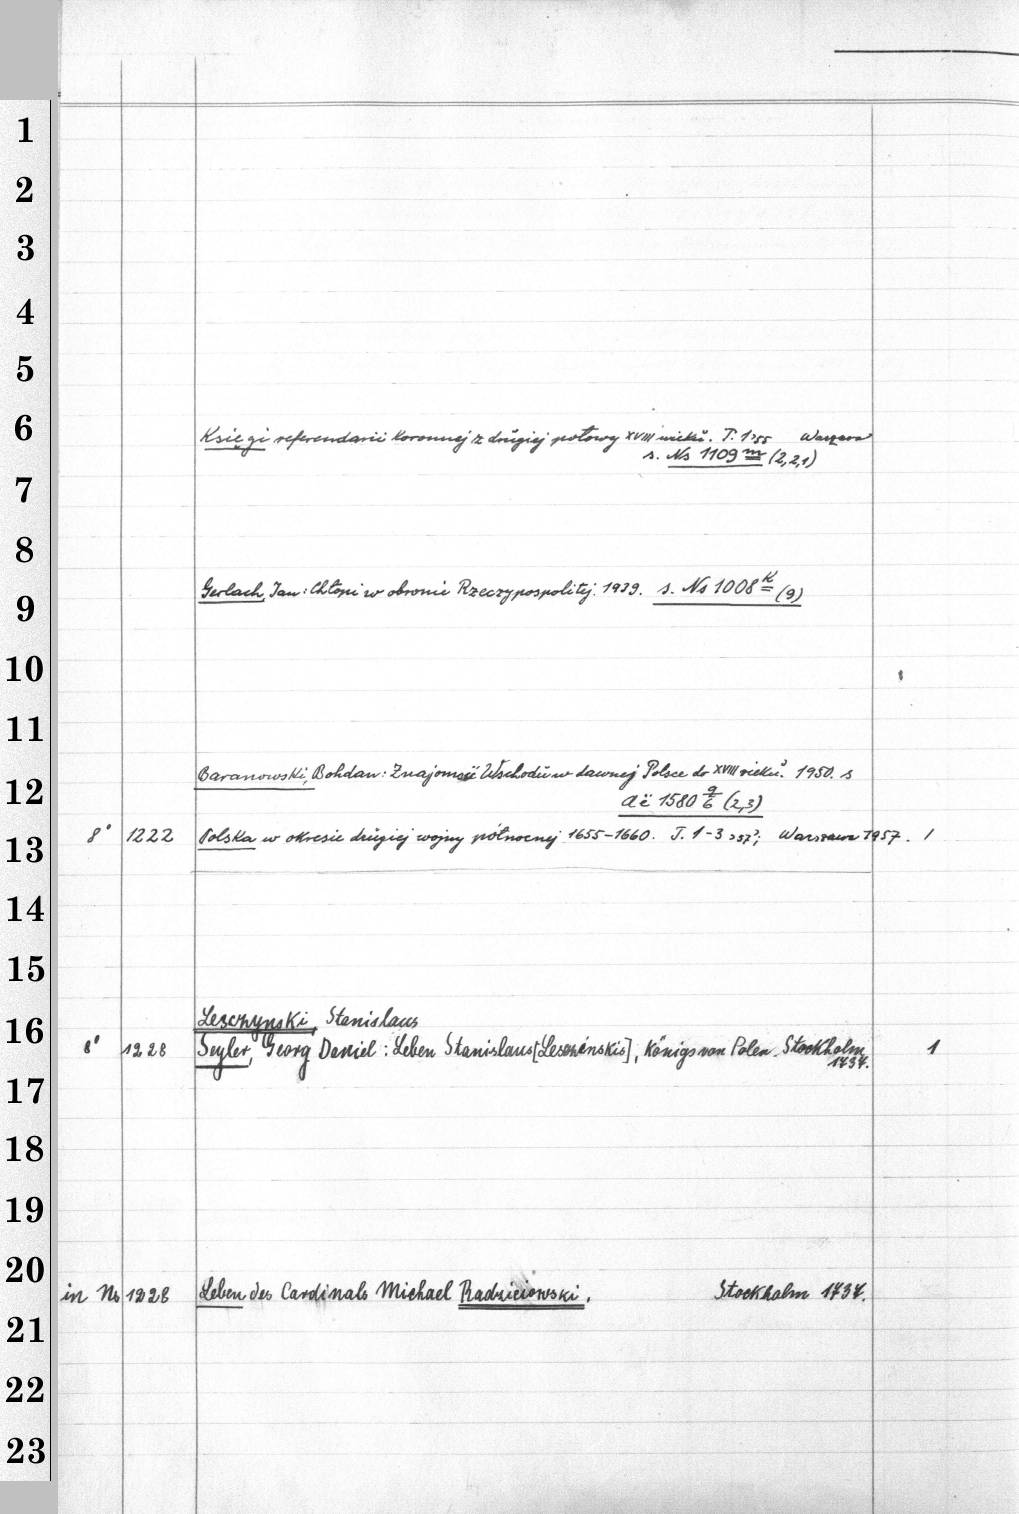 1
2
3
4
5
6
Księgi referendarii koronnej z drŭgiej połowy XVIII wiekŭ. T. 1>55 Warszawa
s. Ns 1109 m (2,2,1)
7
8
9
Gerlach, Jan: Chłopi w obronie Rzeczypospolitej. 1939. s. Ns 1008 K (9)
10
11
12
Baranowski, Bohdan: Znajomość Wschodŭ w dawnej Polsce do XVIII wiekŭ. 1950. s
Aë 1580 g/6 (2,3)
13
8° 1222 Polska w okresie drŭgiej wojny północnej 1655-1660. T. 1-3 >57?; Warszawa 1957. 1
14
15
16
Lesczynski, Stanislaus
8° 1228 Seyler, Georg Daniel: Leben Stanislaus [Leszinskis], Königs von Polen. Stockholm 1737. 1
17
18
19
20
in Ns 1228 Leben des Cardinals Michael Radzieiowski. Stockholm 1737.
21
22
23